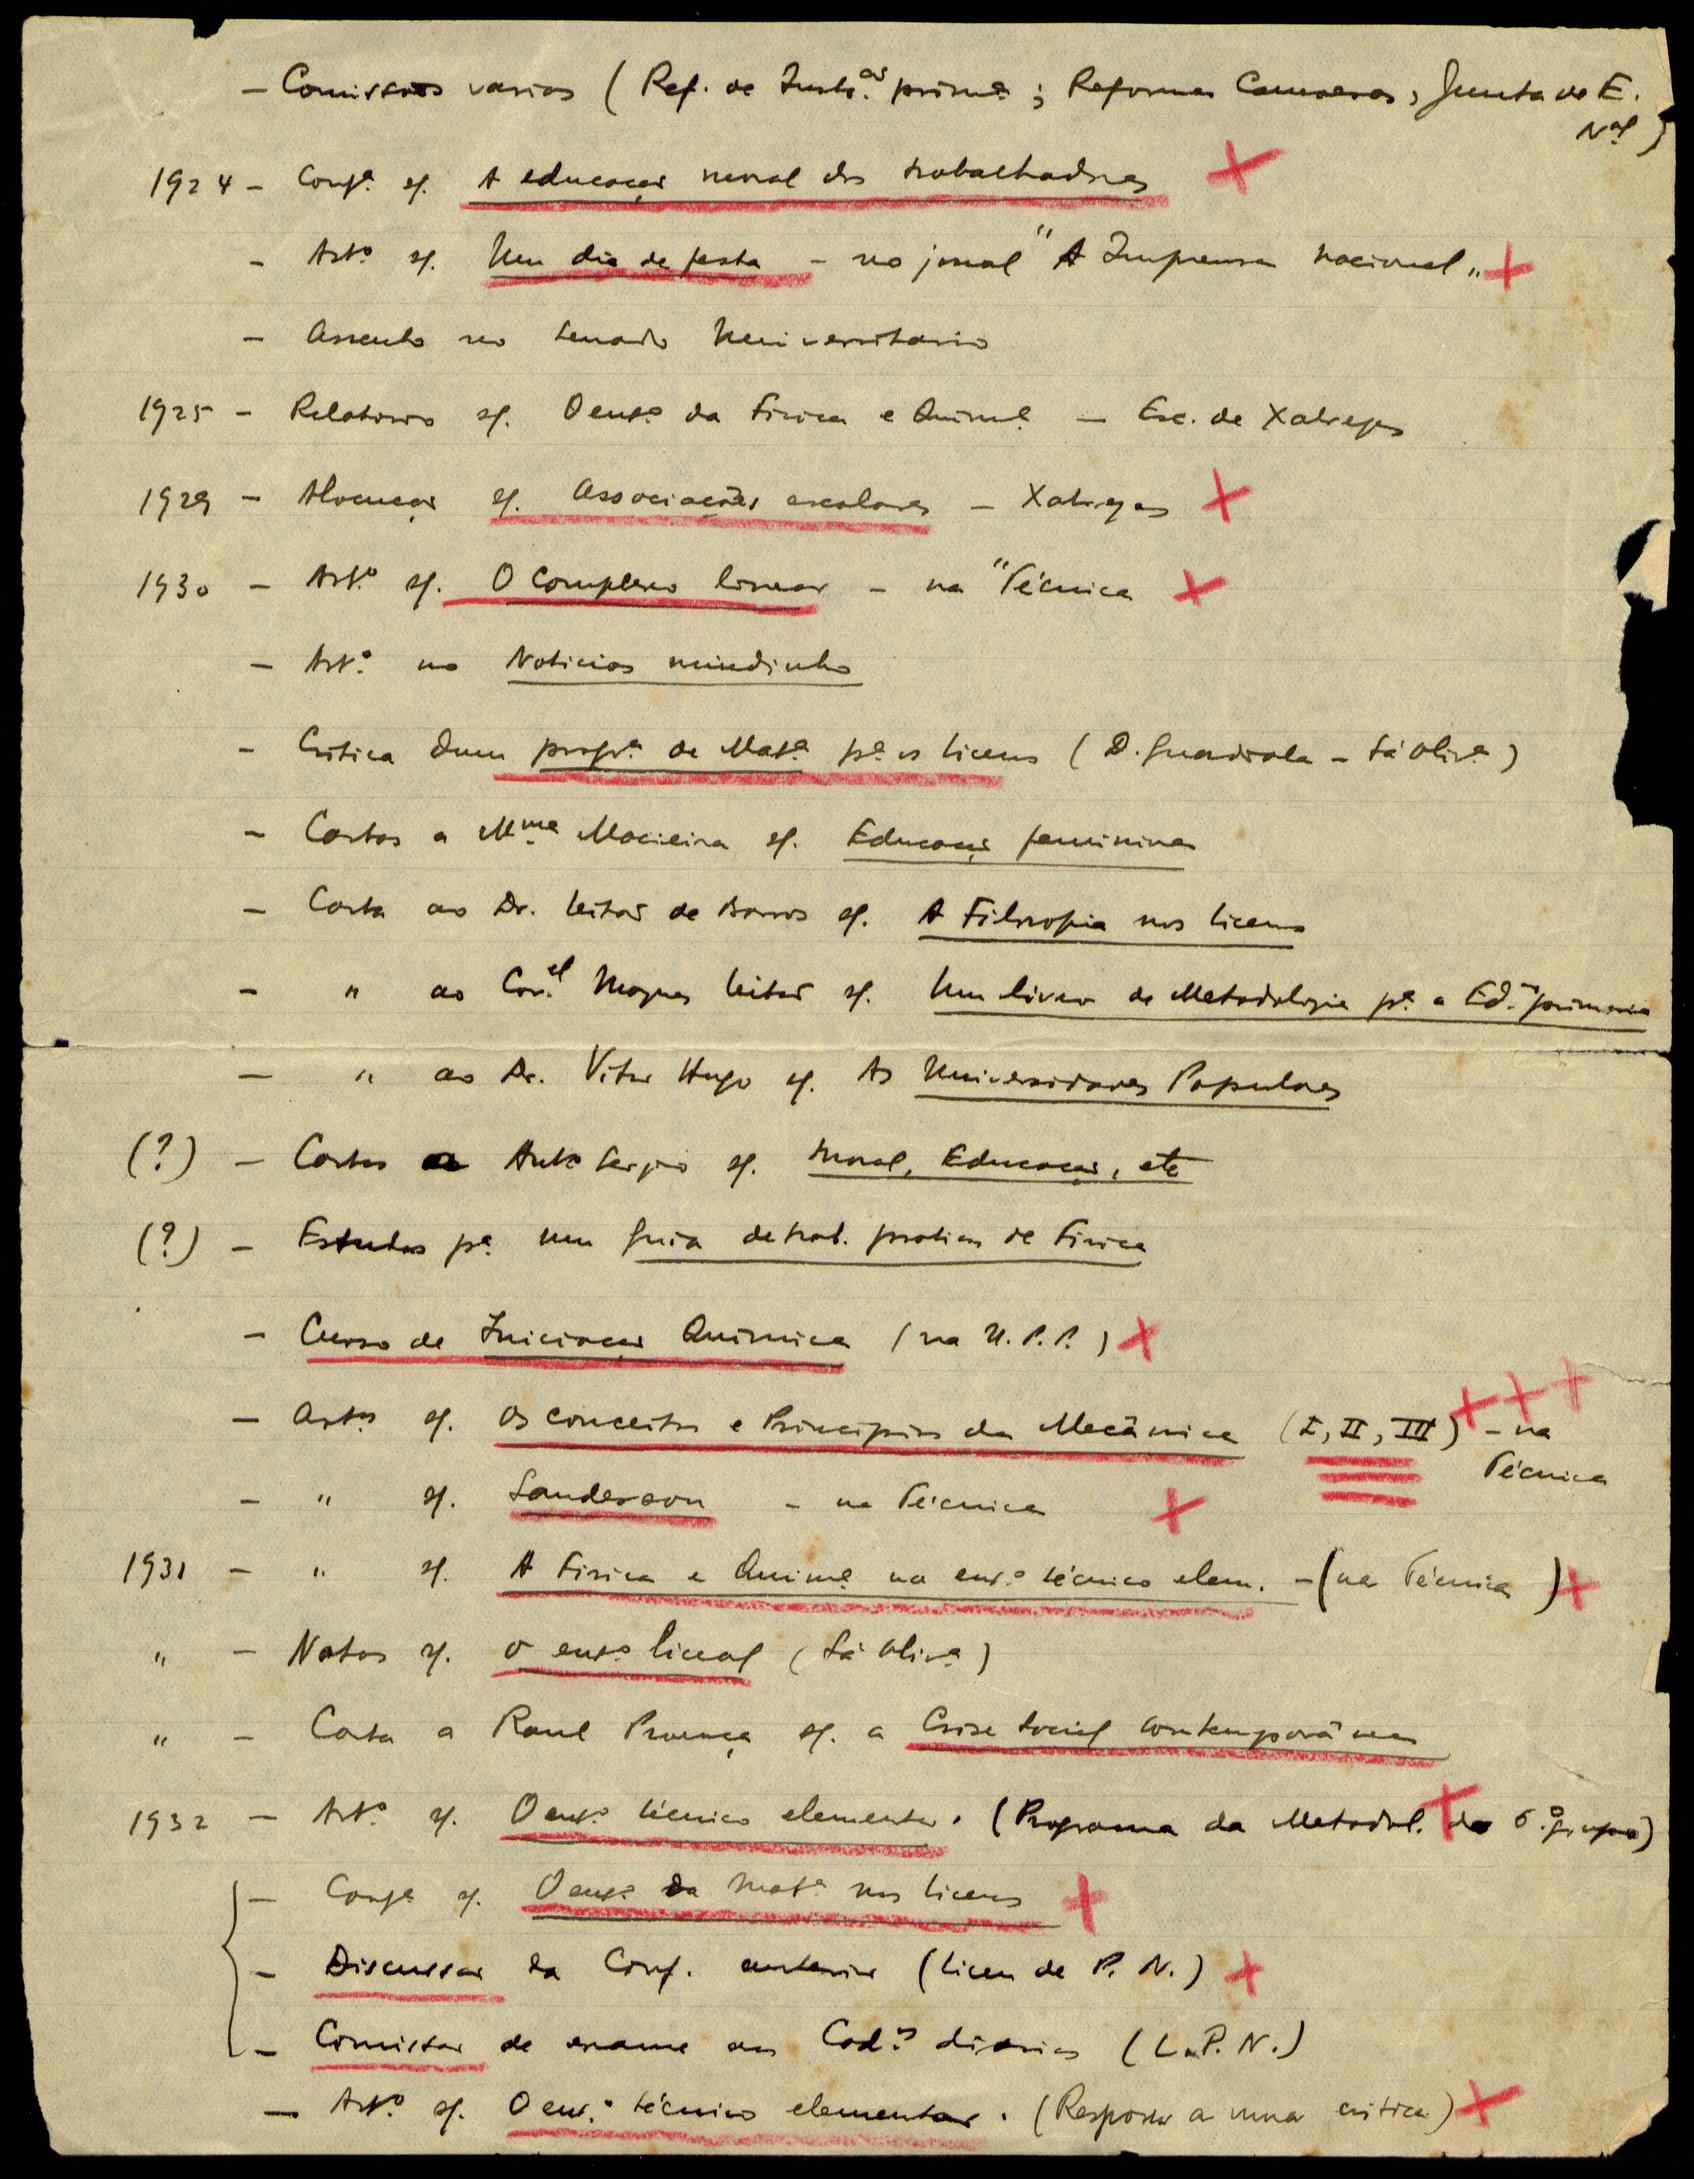 - Comissões varias (Ref. de Instr.ão prim.a; Reforma Camoesas, Junta de E. N.al)
1924 - Conf.a sf. A educação moral dos trabalhadores
- Art.o sf. Um dia de festa - no jornal "A Imprensa Nacional"
- Assento no Senado Universitario
1925 - Relatorio sf. O ens.o da Fisica e Quim.a - Esc. de Xabregas
1929 - Alocução sf. Associações escolares - Xabregas
1930 - Art.o sf. O Complexo linear - na "Técnica
- Art.o no Noticias miudinho
- Critica dum progr.a de Mat.a p.a os liceus (D. Guardiola - Sá Oliv.a)
- Cartas a M.me Macieira sf. Educação feminina
- Carta ao Dr. Leitão de Barros sf. A Filosofia nos liceus
- " ao Cor.el Magno Leitão sf. Um livro de Metodologia p.a a Ed.ão primaria
- " ao Dr. Vitor Hugo sf. As Universidades Populares
(?) - Cartas a Ant.o Sergio sf. Moral, Educação, etc
(?) - Estudos p.a um guia de trab. praticos de Fisica
- Curso de Iniciação Quimica (na U.P.P.)
- Art.os sf. Os conceitos e Principios da Mecânica (I, II, III) - na Técnica
- " sf. Sanderson - na Técnica
1931 - " sf. A Fisica e Quim.a no ens.o técnico elem. - (na Técnica)
" - Notas sf. o ens.o liceal (Sá Oliv.a)
" - Carta a Raul Proença sf. a Crise Social Contemporânea
1932 - Art.o sf. O ens.o técnico elementar. (Programa da Metodol. do 6.o grupo)
- Conf.a sf. O ens.o da Mat.a nos liceus
- Discussão da Conf. anterior (Liceu de P. N.)
- Comissão de exame aos Cad.os diarios (L. P. N.)
- Art.o sf. O ens.o técnico elementar. (Resposta a uma critica)